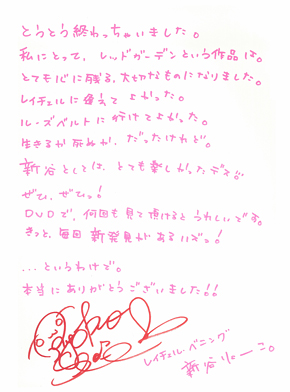 とうとう終わっちゃいました。
私にとって、レッドガーデンという作品は。
とても心に残る、大切なものになりました。
レイチェルに会えて よかった。
ルーズベルトに行けてよかった。
生きるか死ぬか、だったけれど。
新谷としては、とても楽しかったデス!!
ぜひ、ぜひっ!
DVDで、何回も見て頂けると うれしいです。
きっと、毎回 新発見が あるハズっ!
...というわけで。
本当に ありがとう ございました!!
レイチェル・ベニング
新谷りょーこ。